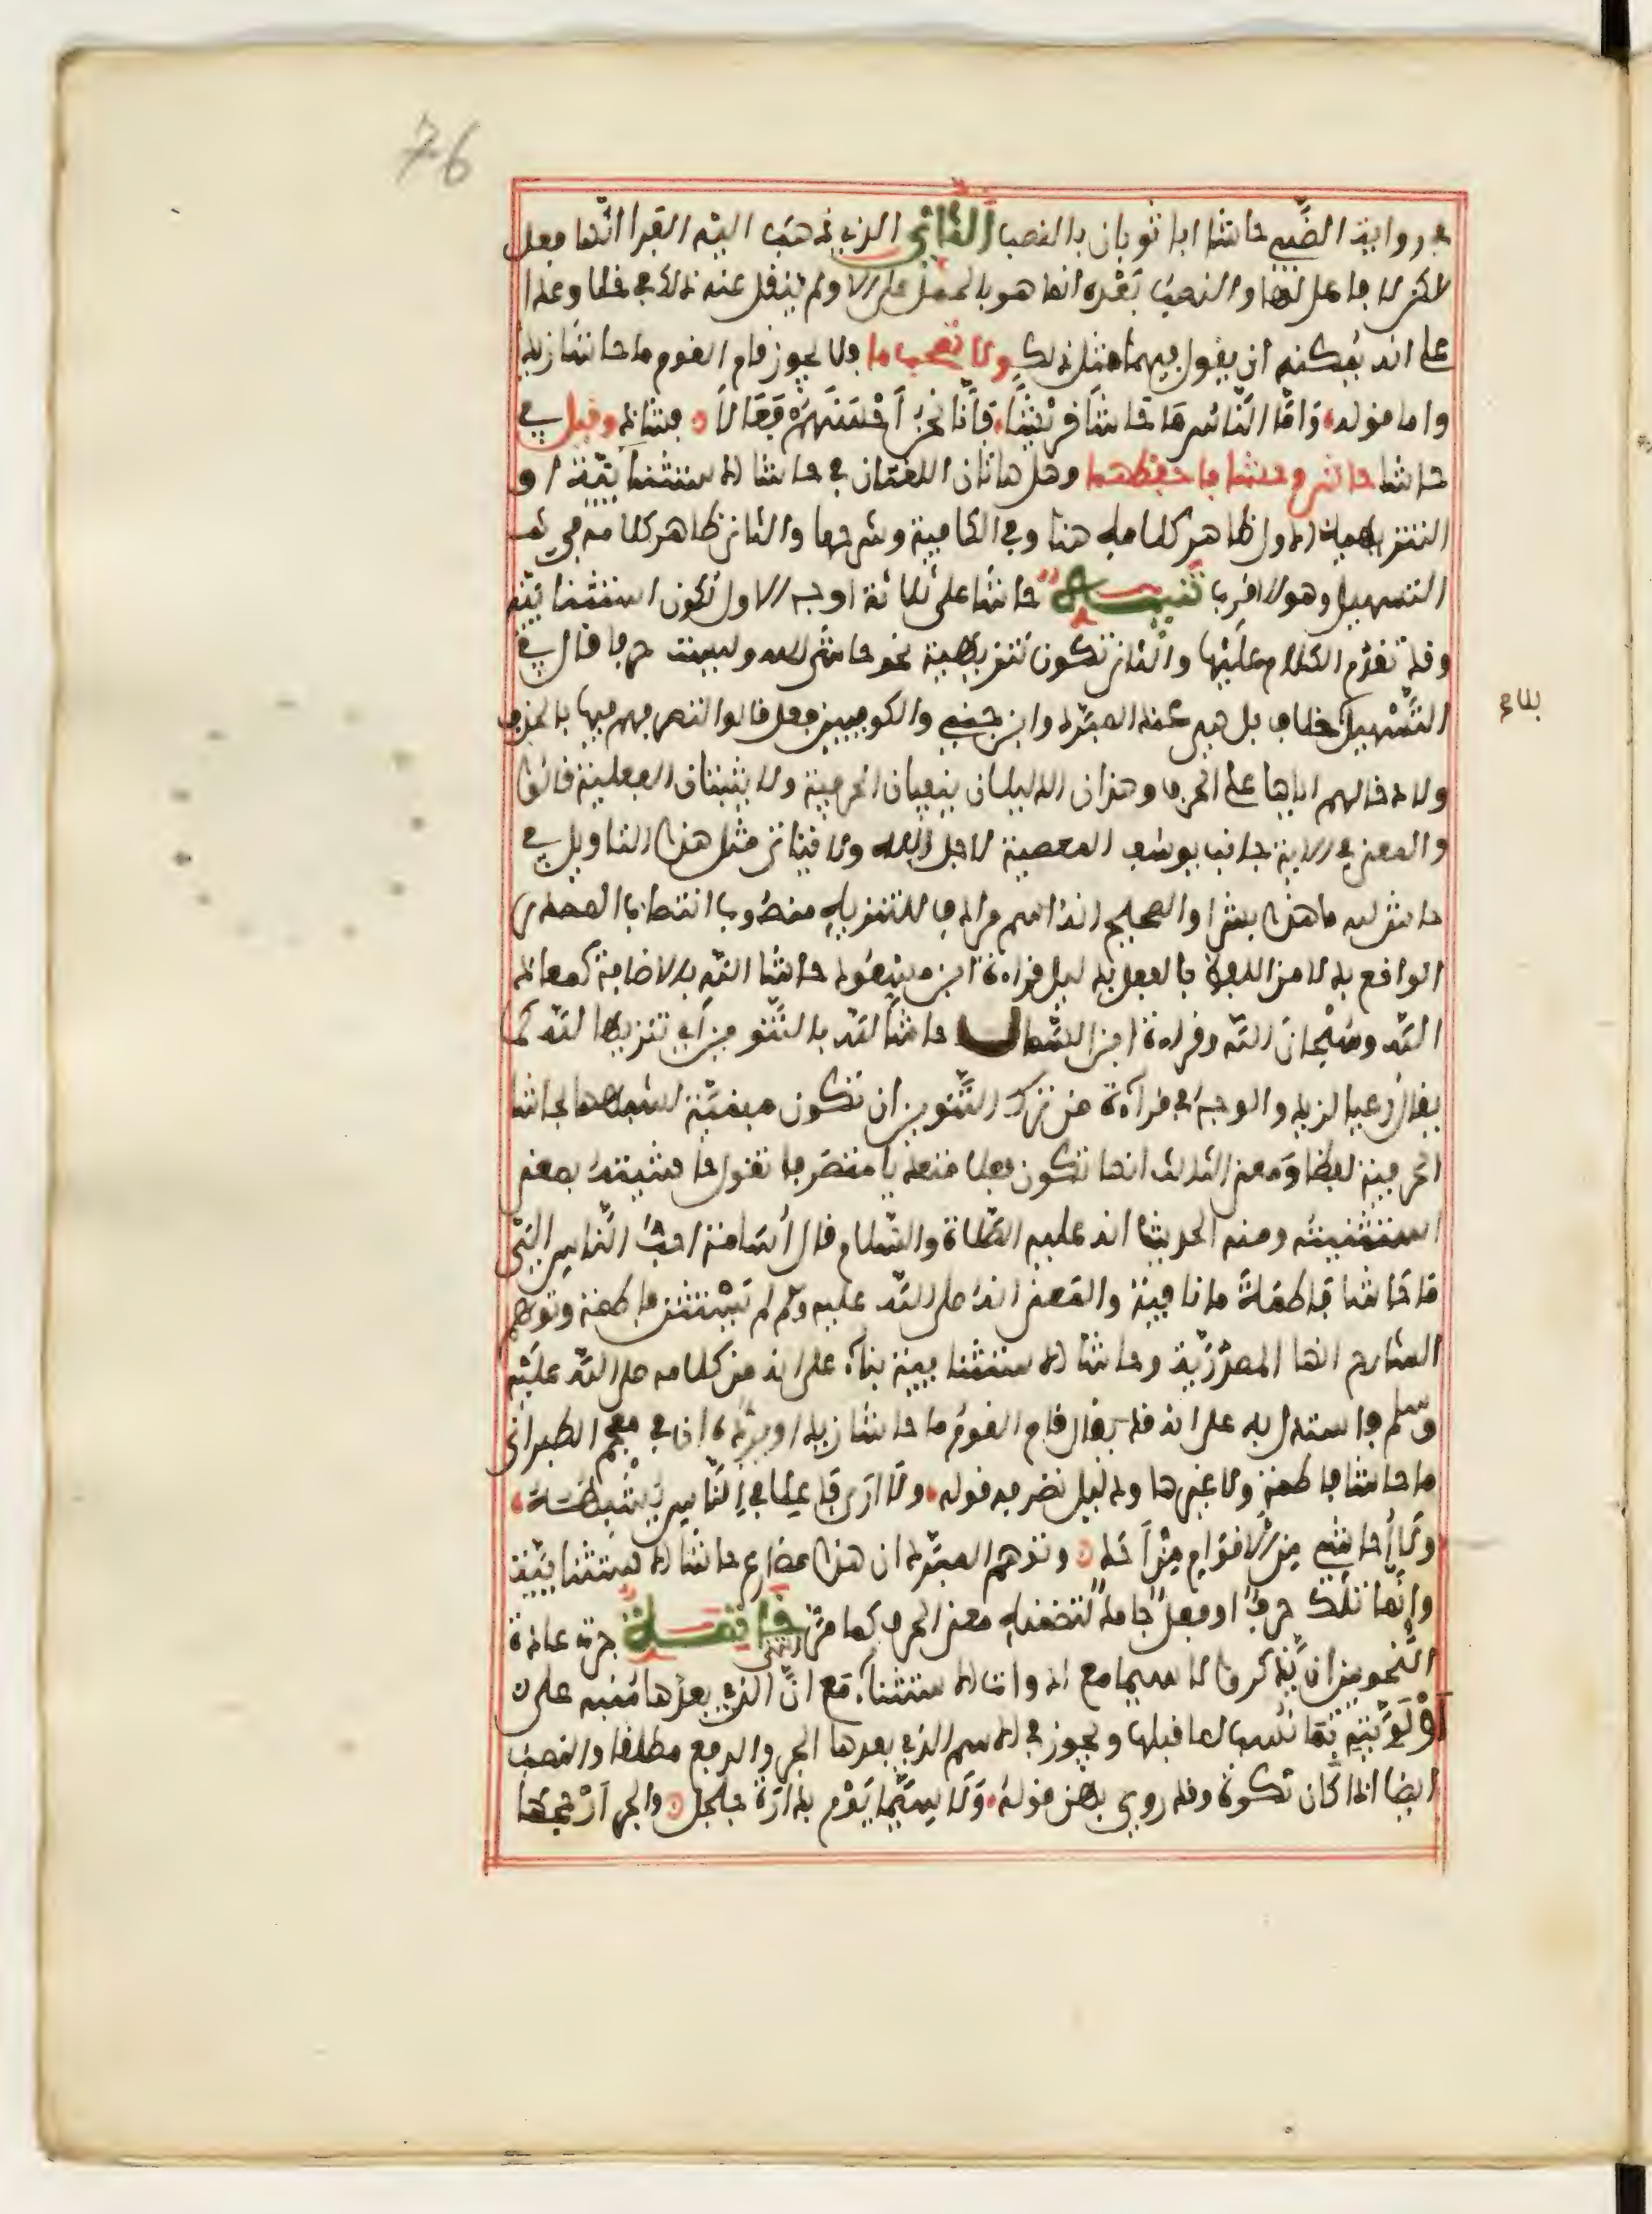 76
في رواية الضبي حاشا ابا ثوبان بالنصب الثاني الذي ذهب اليه الفرا انها فعل
لاكن لا فاعل لها والنصب بعده انما هو بالحمل على الا ولم ينقل عنه ذلك في خلا وعدا
على انه يمكنه ان يقول فيهما مثل ذلك ولا تصحب ما ولا يجوز قام القوم ما حاشا زيد
واما قوله وَأمّا النَّاسَ مَا حَاشَا قُرَيْشًا فَإنَّا نَحْنُ أَفْضَلُهُمْ فَعَالاً فشاذ وقيل في
حاشا حاش وحشا فاحفظهما وهل هاتان اللغتان في حاشا الاستثنائية او
التنزيهية الاول ظاهر كلامه هنا وفي الكافية وشرحها والثاني ظاهر كلامه في
التسهيل وهو الاقرب تنبيه حاشا على ثلاثة اوجه الاول تكون استثنائية
وقد تقدم الكلام عليها والثاني تكون تنزيهية نحو حاش لله وليست حرفا قال في
التسهيل بلا خلاف بل هي عند المبرد وابن جني والكوفيين فعل قالوا لتصرفهم فيها بالحذف
ولادخالهم اياها على الحرف وهذان الدليلان ينفيان الحرفية ولا يثبتان الفعلية قالوا
والمعنى في الاية جانب يوسف المعصية لاجل الله ولا يتاتى مثل هذا التاويل في
حاش لله ما هذا بشرا والصحيح انها اسم مرادف للتنزيه منصوب انتصاب المصدر
الواقع بدلا من اللفظ بالفعل بدليل قراءة ابن مسعود حاشا الله بالاضافة كمعاذ
الله وسبحان الله وقراءة ابن السمال حاشا لله بالتنوين اي تنزيها لله كما
يقال رعيا لزيد والوجه في قراءة من ترك التنوين ان تكون مبنية لشبهها بحاشا
الحرفية لفظا ومعنى الثالث انها تكون فعلا متعديا متصرفا تقول حاشيته بمعنى
استثنيته ومنه الحديث انه عليه الصلاة والسلام قال أسامة احب الناس الي
ما حاشا فاطمة ما نافية والمعنى انه صلى الله عليه وسلم لم يستثن فاطمة وتوهم
الشارح انها المصدرية وحاشا الاستثنائية بناء على انه من كلامه صلى الله عليه
وسلم فاستدل به على انه قد يقال قام القوم ما حاشا زيدا ويرده ان في معجم الطبراني
ما حاشا فاطمة ولا غيرها ودليل تصرفه قوله ولا ارى فاعلا في الناس يشبهه
ولا أحاشي من الاقوام من أحد وتوهم المبرد ان هذا مضارع حاشا الاستثنائية
وانما تلك حرف او فعل جامد لتضمنه معنى الحرف كما مر انتهى خاتمة جرت عادة
النحويين ان يذكروا لا سيما مع ادوات الاستثناء مع ان الذي بعدها منبه على
أولويته بما نسب لما قبلها ويجوز في الاسم الذي بعدها الجر والرفع مطلقا والنصب
ايضا اذا كان نكرة وقد روي بهن قوله ولا سيما يوم بدارة جلجل والجر ارجحها
بلغ